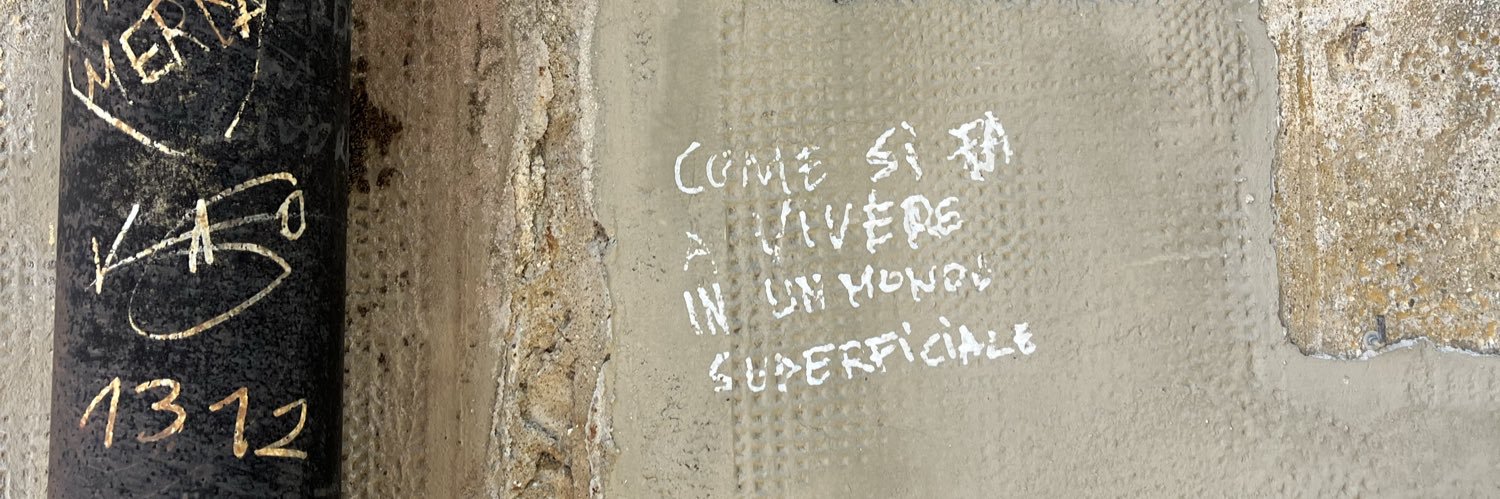 MERDA
1312
COME SI FA
A VIVERE
IN UN MONDO
SUPERFICIALE